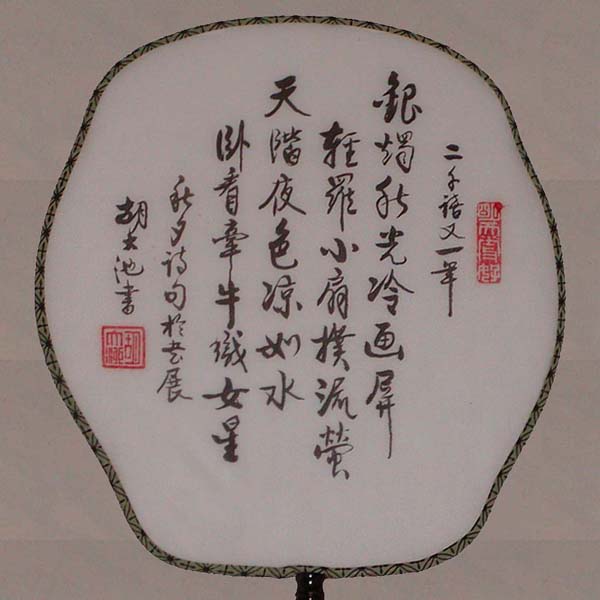 二千語又一年
銀燭秋光冷画屏
輕羅小扇撲流螢
天階夜色凉如水
卧看牽牛織女星
秋夕詩句於書展
胡大池書